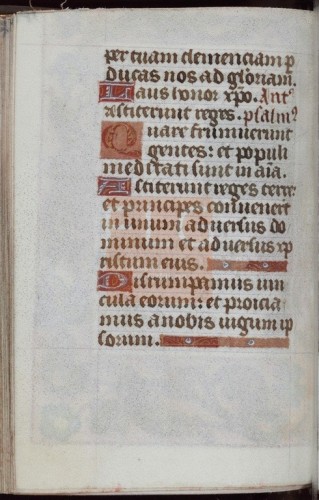 per tuam clemenciam p
ducas nos ad gloriam.
Laus honor xpo. Ant
Astiterunt reges. psalm
Quare fremuerunt
gentes: et populi
meditati sunt in aia.
Astiterunt reges terre:
et principes convenerūt
in unum adversus do
minum et adversus xp
ristum eius.
Disrumpamus vin
cula eorum: et proicia
mus a nobis iugum ip
sorum.